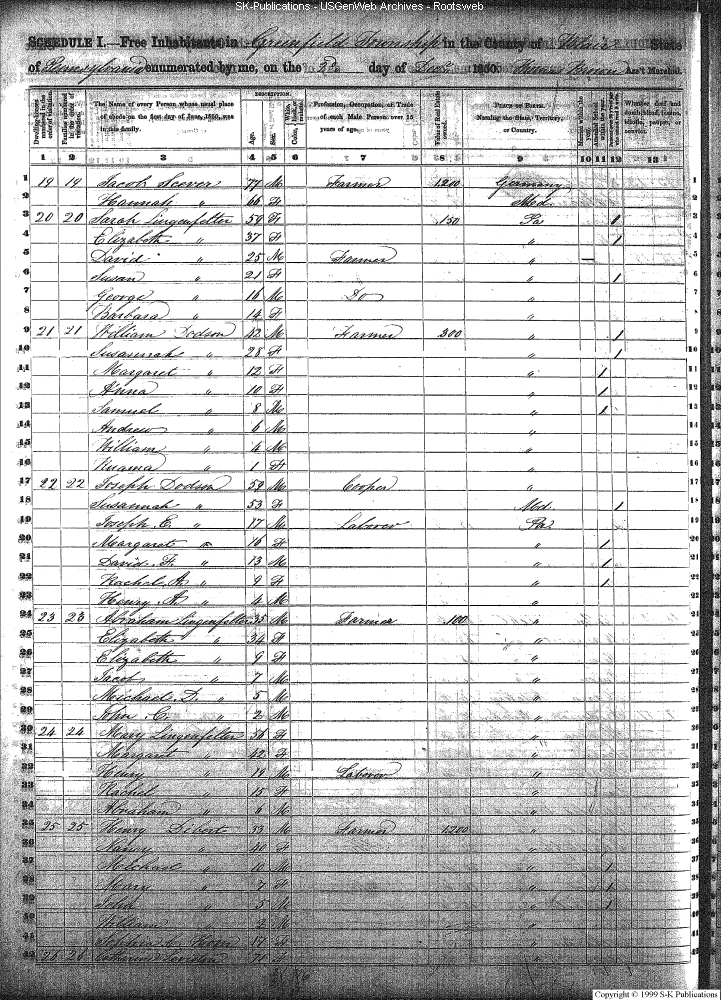 SK-Publications - USGenWeb Archives - Rootsweb
SCHEDULE I.—Free Inhabitants in Greenfield Township in the County of Blair State
of Pennsylvania enumerated by me, on the day of 1850. Ass't Marshal.
DESCRIPTION.
Dwelling-houses numbered in the order of visitation. Families numbered in the order of visitation. The Name of every Person whose usual place of abode on the first day of June, 1850, was in this family. Age. Sex. White, black, or mulatto. Profession, Occupation, or Trade of each Male Person over 15 years of age. Value of Real Estate owned. PLACE OF BIRTH. Naming the State, Territory, or Country. Married within the year. Attended School within the year. Whether deaf and dumb, blind, insane, idiotic, pauper, or convict.
1 2 3 4 5 6 7 8 9 10 11 12 13
1 19 19 Jacob M Farmer 1200 Germany 1
2 Hannah " 66 F Md 2
3 20 20 Sarah Lingenfelter 59 F 150 Pa / 3
4 Elizabeth " 37 F " / 4
5 David " 25 M Farmer " 5
6 Susan " 21 F " / 6
7 George " 16 M Do " 7
8 Barbara " 14 F " 8
9 21 21 William Dodson 42 M Farmer 300 " / 9
10 Susannah " 28 F " / 10
11 Margaret " 12 F " / 11
12 Anna " 10 F " / 12
13 Samuel " 8 M " / 13
14 Andrew " 6 M " 14
15 William " 4 M " 15
16 " 1 F " 16
17 22 22 Joseph Dodson 59 M Cooper " 17
18 Susannah " 53 F Md. / 18
19 Joseph C. " 17 M Laborer Pa 19
20 Margaret " 16 F " / 20
21 David F. " 13 M " / 21
22 Rachel A. " 9 F " / 22
23 Henry A. " 4 M " 23
24 23 23 Abraham Lingenfelter 35 M Farmer 100 " 24
25 Elizabeth " 34 F " 25
26 Elizabeth " 9 F " 26
27 Jacob " 7 M " 27
28 Michael D. " 5 M " 28
29 John C. " 2 M " 29
30 24 24 Mary Lingenfelter 56 F " 30
31 Margaret " 42 F " 31
32 Henry " 19 M Laborer " 32
33 Rachel " 15 F " 33
34 Abraham " 6 M " 34
35 25 25 Henry Dibert 53 M Farmer 1200 " 35
36 Nancy " 40 F " 36
37 Michael " 10 M " / 37
38 Mary " 7 F " / 38
39 John " 5 M " / 39
40 William " 2 M " 40
41 Sophia 17 F " 41
42 26 26 Catharine F " 42
Copyright © 1999 S-K Publications